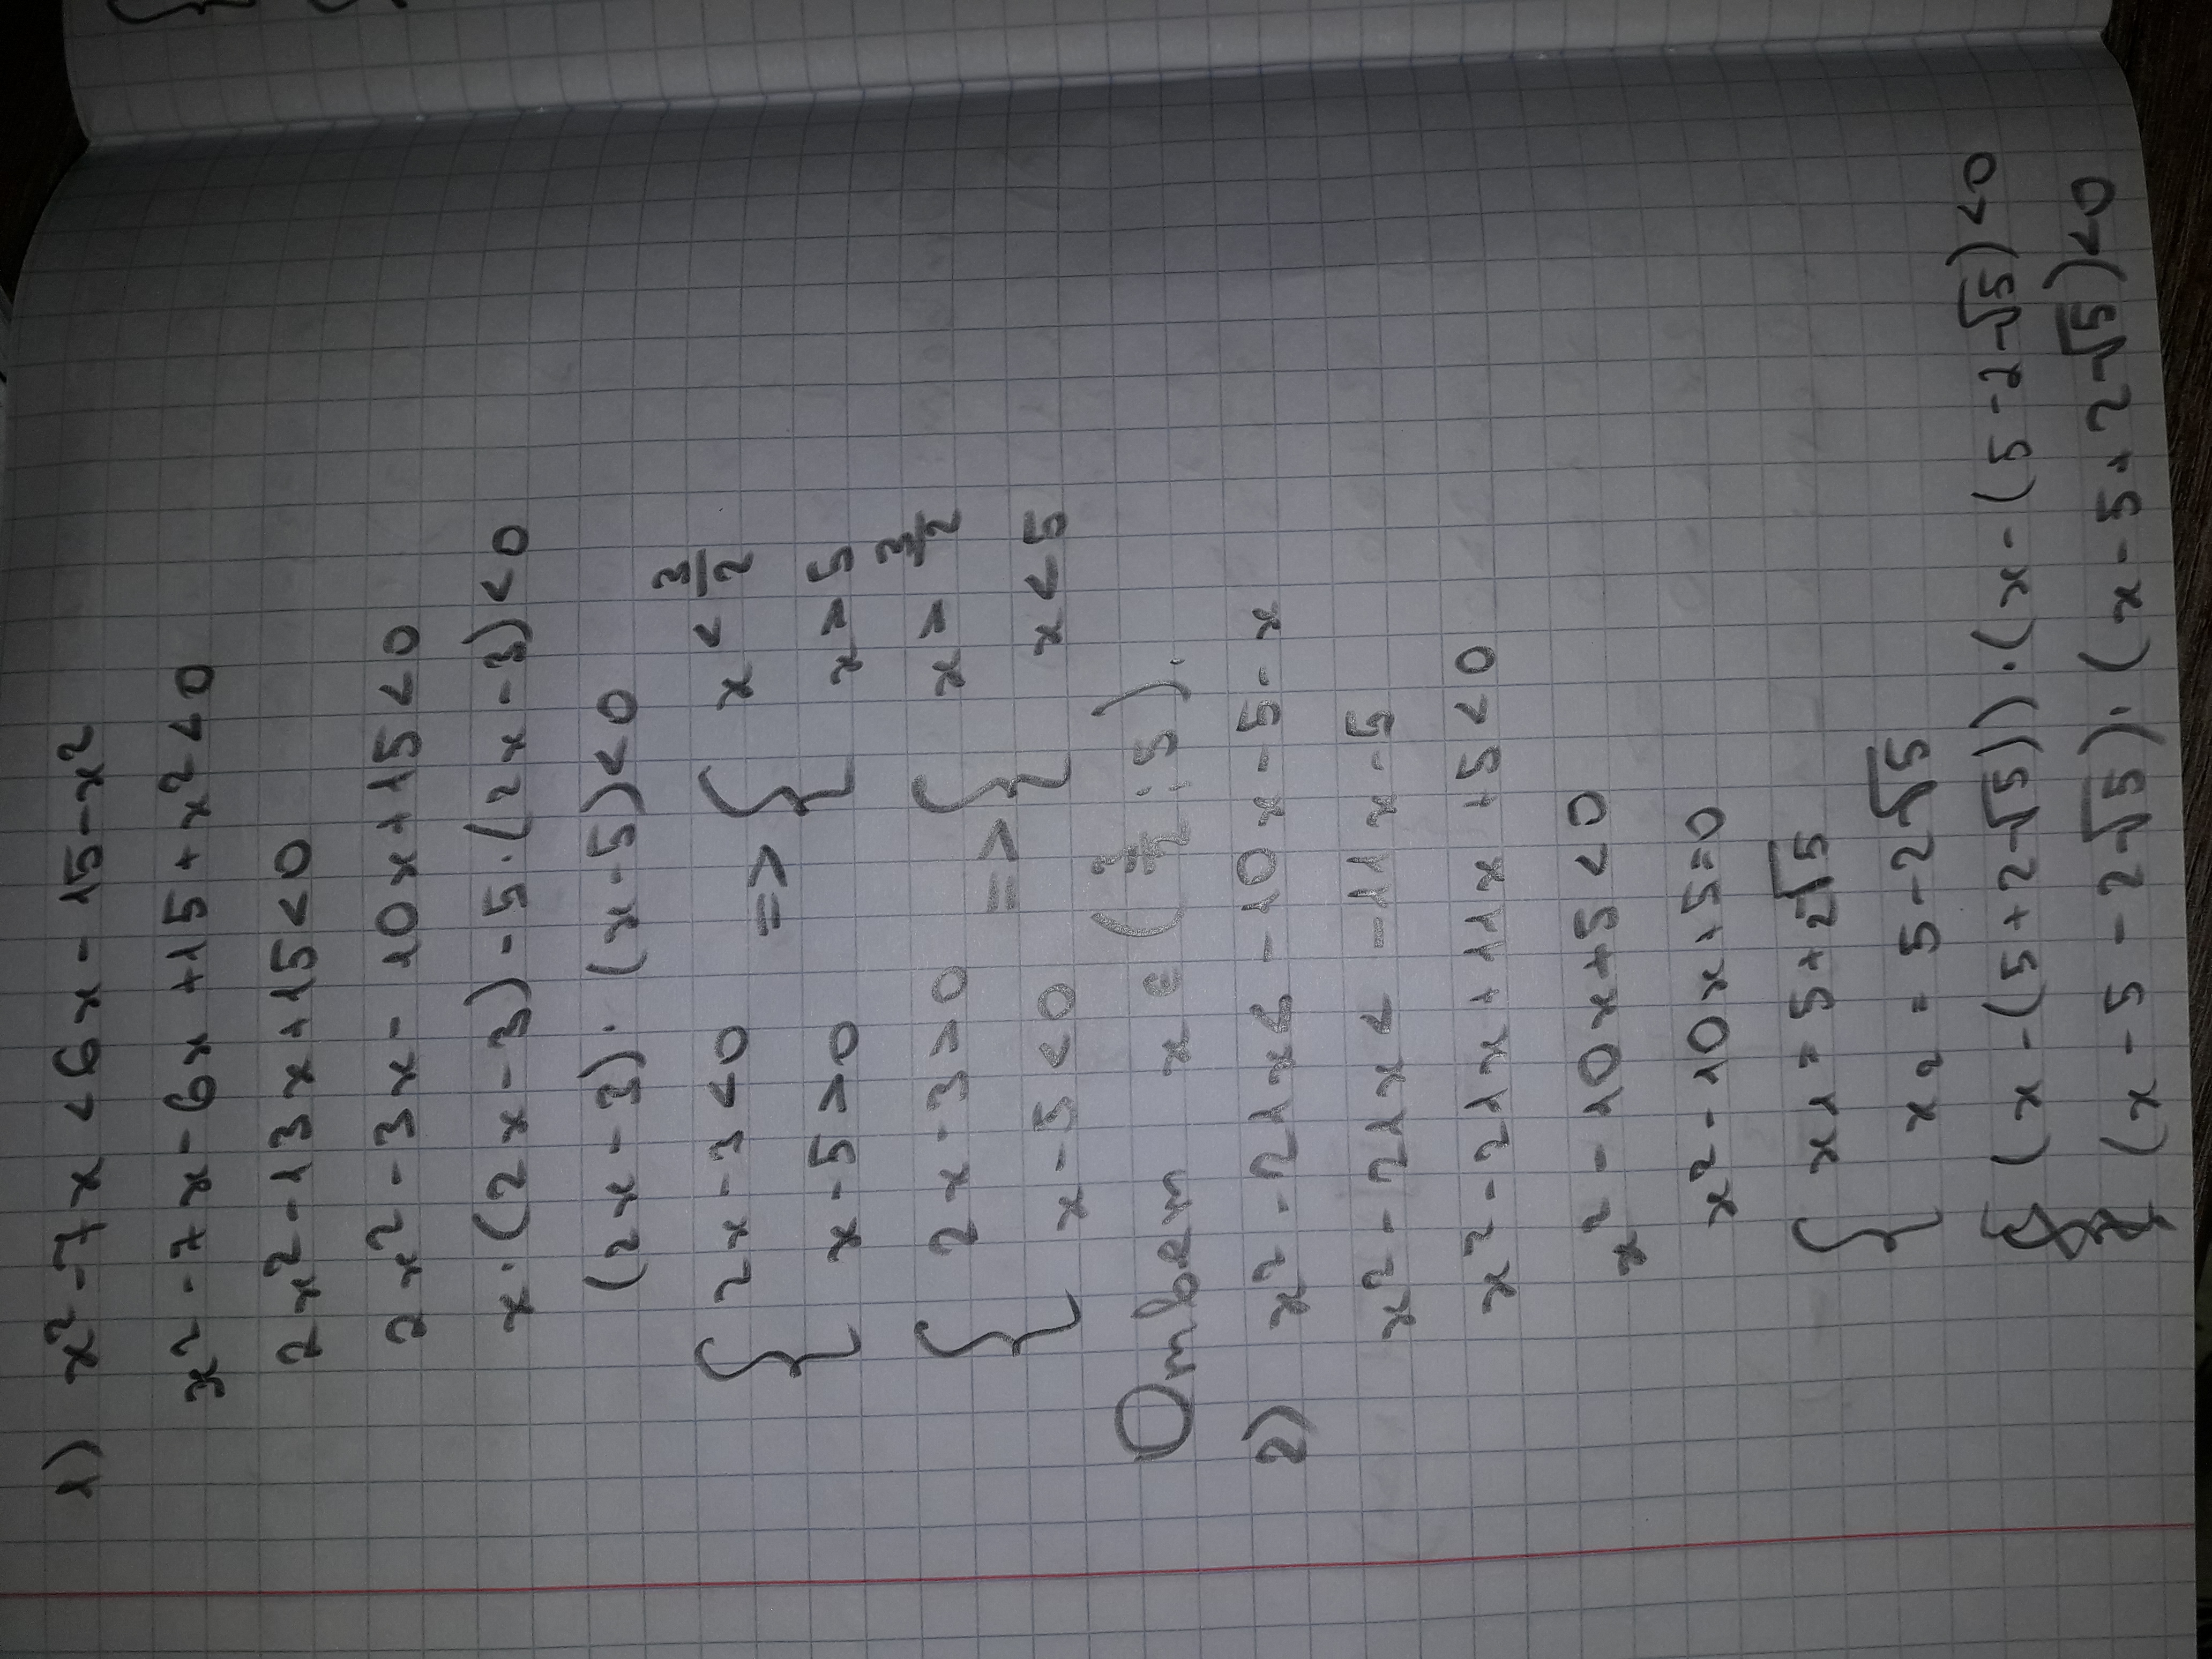 1) x² - 7x < 6x - 15 - x²
x² - 7x - 6x + 15 + x² < 0
2x² - 13x + 15 < 0
2x² - 3x - 10x + 15 < 0
x · (2x - 3) - 5 · (2x - 3) < 0
(2x - 3) · (x - 5) < 0
{ 2x - 3 < 0 => { x < 3/2
x - 5 > 0 x > 5
{ 2x - 3 > 0 => { x > 3/2
x - 5 < 0 x < 5
Ответ x ∈ (3/2 ; 5).
2) x² - 21x < -10x - 5 - x
x² - 21x < -11x - 5
x² - 21x + 11x + 5 < 0
x² - 10x + 5 < 0
x² - 10x + 5 = 0
{ x1 = 5 + 2√5
x2 = 5 - 2√5
(x - (5 + 2√5)) · (x - (5 - 2√5) < 0
(x - 5 - 2√5) · (x - 5 + 2√5) < 0